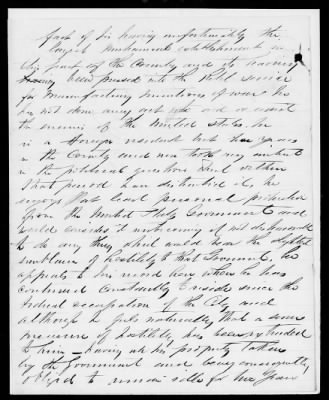 fact of his having unfortunately the
largest mechanical establishment in
this part of the County and its having
been pressed into the Rebel service
for manufacturing munitions of war he
has not done any act to aid or assist
the enemies of the United States. he
is a foreign resident but has years
in the County and never took any interest
in the political questions which within
that period have disturbed it, he
enjoys that least personal protection
from the United States Government and
would consider it unbecoming if not dishonorable
to do any thing which would bear the slightest
semblance of hostility to that Government, he
appeals to his record here where he has
continued constantly to reside since the
Federal occupation of the City and
although he feels naturally that a severe
measure of hostility has been extended
to him having all his property taken
by the Government and being consequently
obliged to remain idle for two years